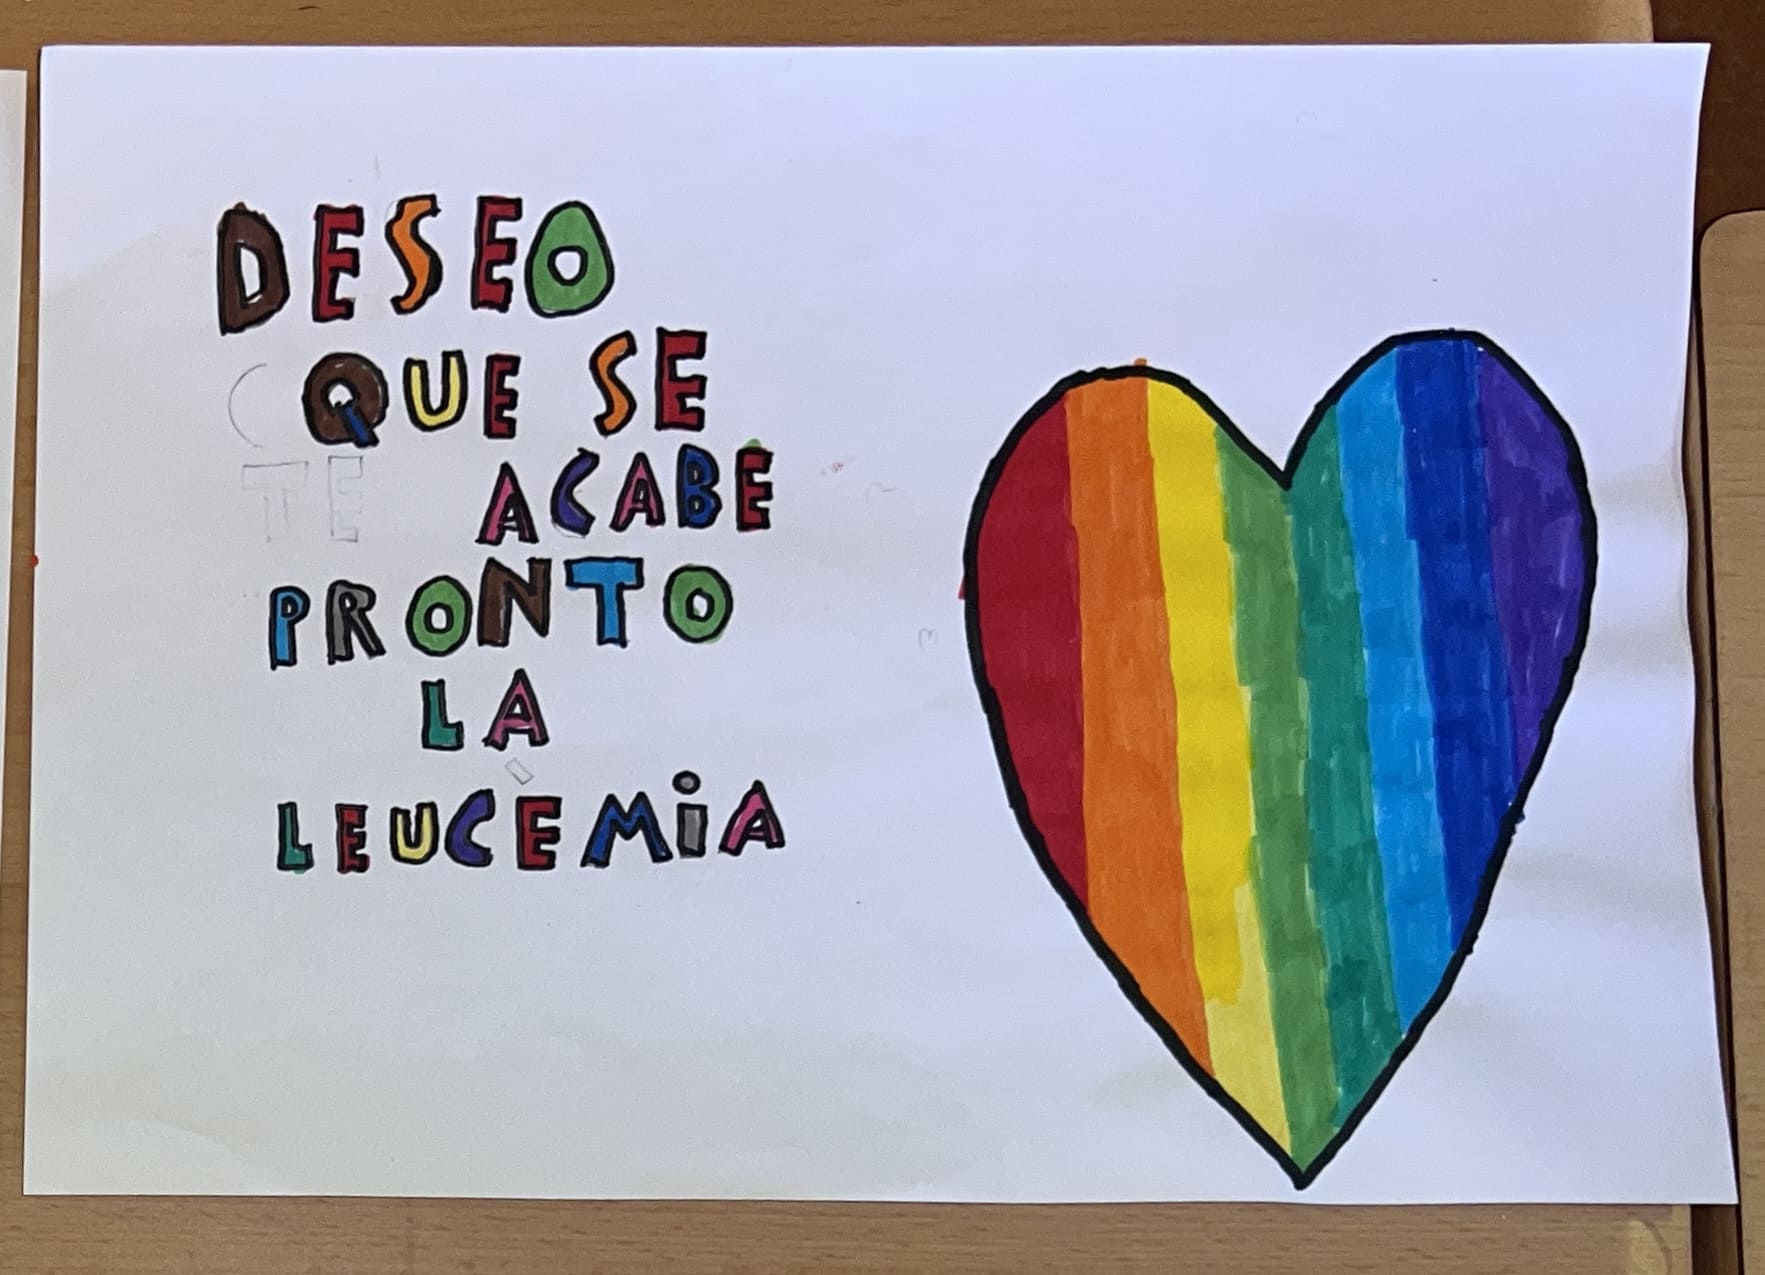 DESEO
QUE SE
TE ACABE
PRONTO
LA
LEUCEMiA